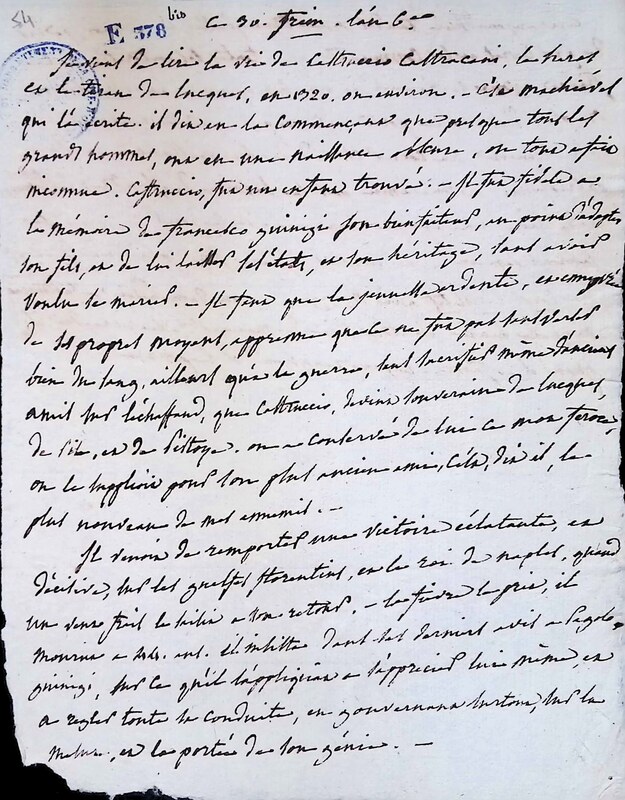 54
E 378 bis
ce 30. frim. l'an 6.me
Je viens de lire la vie de Castruccio Castracani, le heros
et le tiran de Lucques, en 1320. ou environ. - C'est Machiavel
qui l'a écrite. il dit en la commençant que presque tous les
grands hommes, ont eu une naissance obscure, ou tout à fait
inconnue. Castruccio, fut un enfant trouvé. - Il fut fidele a
la mémoire de francesco guinigi son bienfaiteur, au point d'adopter
son fils, et de lui laisser ses états, et son héritage, sans avoir
voulu se marier. - Il faut que la jeunesse ardente, et enivrée
de ses propres moyens, apprenne que ce ne fut pas sans verser
bien du sang, ailleurs qu'à la guerre, sans sacrifier même d'anciens
amis sur l'échaffaud, que Castruccio, devint souverain de Lucques,
de Pise, et de Pistoye. on a conservé de lui ce mot feroce,
on le supplioit pour son plus ancien ami, C'est, dit il, le
plus nouveau de mes ennemis. -
Il venoit de remporter une victoire éclatante, et
décisive, sur les guelfes florentins, et le roi de naples, quand
un vent frais le saisit a son retour. - la fievre le prit, il
mourut a 44. ans. il insista dans ses derniers avis a Pagolo
guinigi, sur ce qu'il s'appliquat a s'apprecier lui même, et
a regler toute sa conduite, en gouvernant surtout, sur la
mesure, et la portée de son génie. -